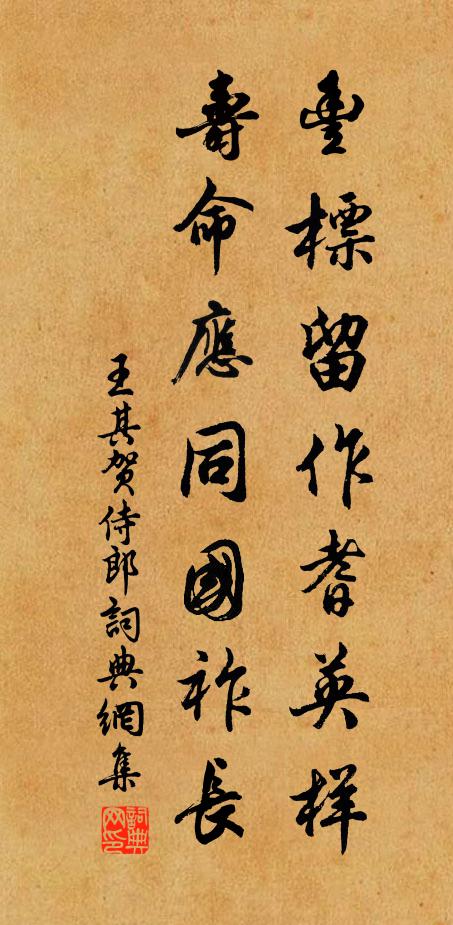 豊標留作耆英样
壽命應同國祚長
王其贺侍郎詞典網集
詞典网印